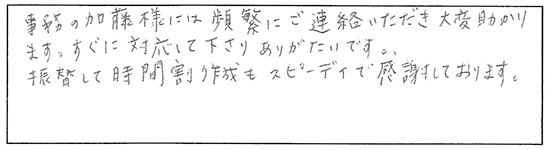 事務の加藤様には頻繁にご連絡いただき大変助かり
ます。すぐに対応して下さりありがたいです。
振替して時間割り作成もスピーディで感謝しております。